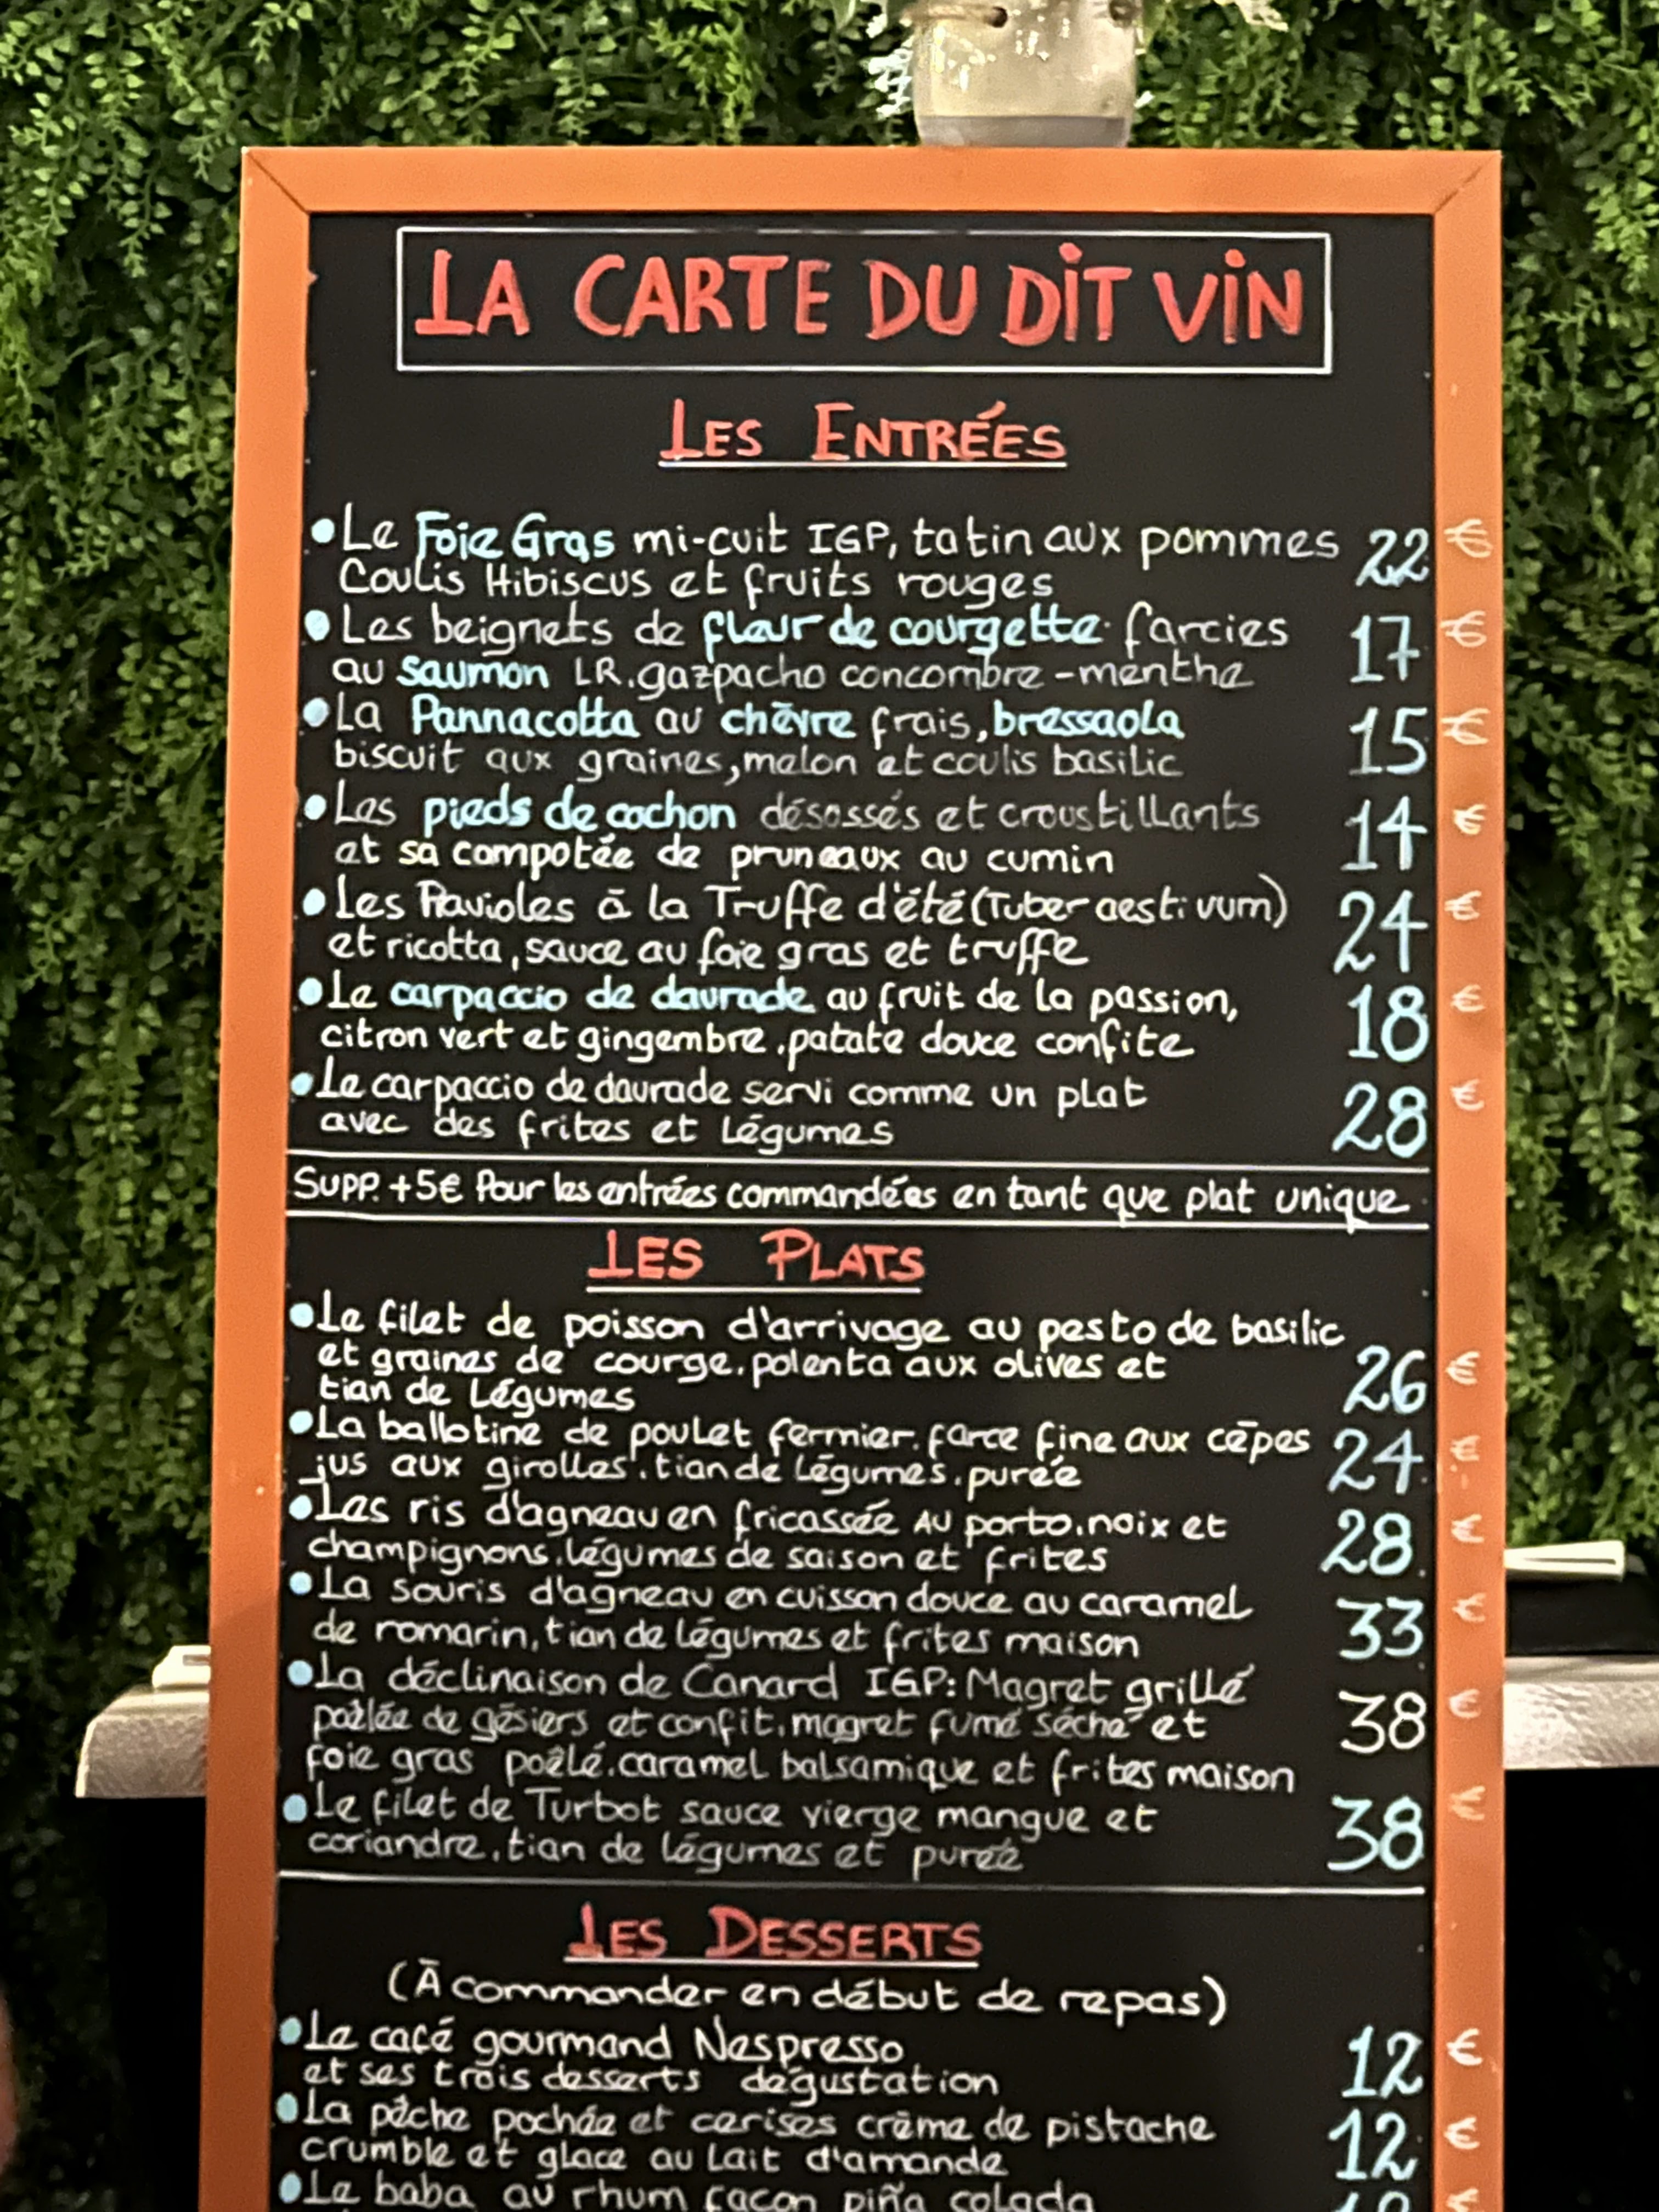 LA CARTE DU DIT VIN
LES ENTRÉES
•Le Foie Gras mi-cuit IGP, tatin aux pommes 22 €
Coulis Hibiscus et fruits rouges
•Les beignets de fleur de courgette farcies 17 €
au saumon LR. gazpacho concombre-menthe
•La Pannacotta au chèvre frais, bressaola 15 €
biscuit aux graines, melon et coulis basilic
•Les pieds de cochon désossés et croustillants 14 €
et sa compotée de pruneaux au cumin
•Les Ravioles à la Truffe d'été (Tuber aestivum) 24 €
et ricotta, sauce au foie gras et truffe
•Le carpaccio de daurade au fruit de la passion, 18 €
citron vert et gingembre. patate douce confite
•Le carpaccio de daurade servi comme un plat 28 €
avec des frites et légumes
SUPP. +5€ Pour les entrées commandées en tant que plat unique
LES PLATS
•Le filet de poisson d'arrivage au pesto de basilic
et graines de courge. polenta aux olives et 26 €
tian de légumes
•La ballotine de poulet fermier. farce fine aux cèpes 24 €
jus aux girolles. tian de légumes. purée
•Les ris d'agneau en fricassée au porto. noix et 28 €
champignons. légumes de saison et frites
•La souris d'agneau en cuisson douce au caramel 33 €
de romarin, tian de légumes et frites maison
•La déclinaison de Canard IGP: Magret grillé 38 €
poêlée de gésiers et confit. magret fumé séché et
foie gras poêlé. caramel balsamique et frites maison
•Le filet de Turbot sauce vierge mangue et 38 €
coriandre. tian de légumes et purée
LES DESSERTS
(À commander en début de repas)
•Le café gourmand Nespresso 12 €
et ses trois desserts dégustation
•La pêche pochée et cerises crème de pistache 12 €
crumble et glace au lait d'amande
•Le baba au rhum façon piña colada